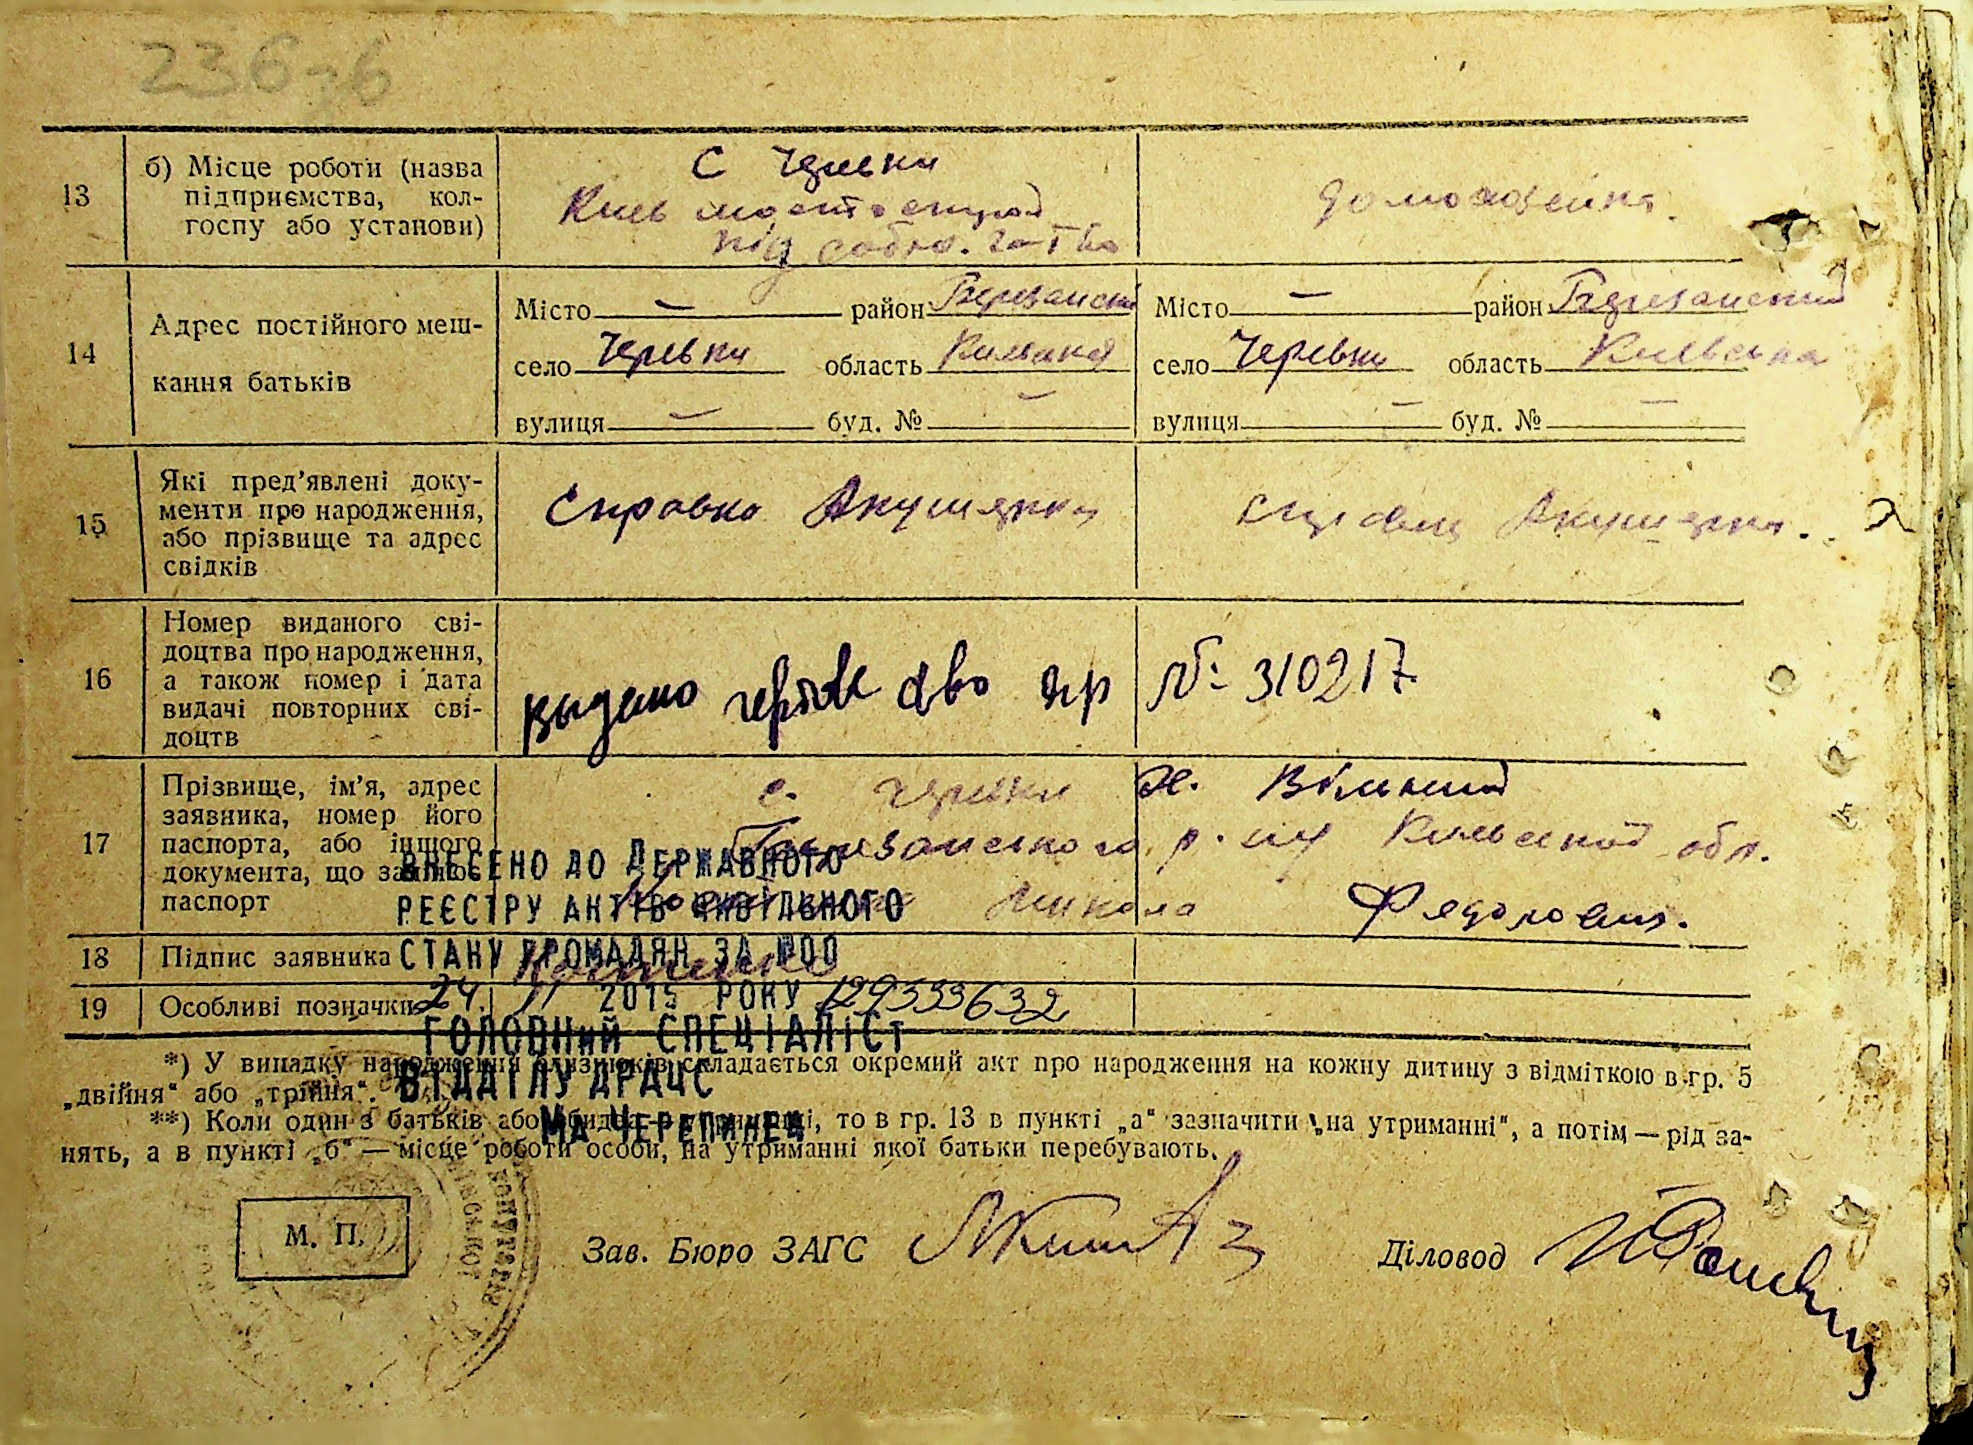 236-зб
13 б) Місце роботи (назва
підприємства, кол-
госпу або установи)
С Черевки
Київ мостострой
під
домохозяйка.
14 Адрес постійного меш-
кання батьків
Місто — район Березанськ
село Черевки область Київська
вулиця — буд. № —
Місто — район Березанский
село Черевки область Київська
вулиця — буд. № —
15 Які пред’явлені доку-
менти про народження,
або прізвище та адрес
свідків
Справка Акушерки
Справка Акушерки.
16 Номер виданого сві-
доцтва про народження,
а також номер і дата
видачі повторних сві-
доцтв
выдано №: 310217
17 Прізвище, ім’я, адрес
заявника, номер його
паспорта, або іншого
документа, що замінює
паспорт
с. Черевки х. Вільний
Березанського р-ну Київської обл.
Микола Федорович.
18 Підпис заявника
19 Особливі позначки
ВНЕСЕНО ДО ДЕРЖАВНОГО
РЕЄСТРУ АКТІВ ЦИВІЛЬНОГО
СТАНУ ГРОМАДЯН ЗА №00
24. 11 2015 РОКУ 129333632
ГОЛОВНИЙ СПЕЦІАЛІСТ
ВІДДІЛУ ДРАЦС
МА ЧЕРЕПИНЕЦ
*) У випадку народження близнюків складається окремий акт про народження на кожну дитину з відміткою в гр. 5
„двійня“ або „трійня“.
**) Коли один з батьків або обидва на утриманні, то в гр. 13 в пункті „а“ зазначити „на утриманні“, а потім — рід за-
нять, а в пункті „б“ — місце роботи особи, на утриманні якої батьки перебувають.
М. П.
Зав. Бюро ЗАГС
Діловод